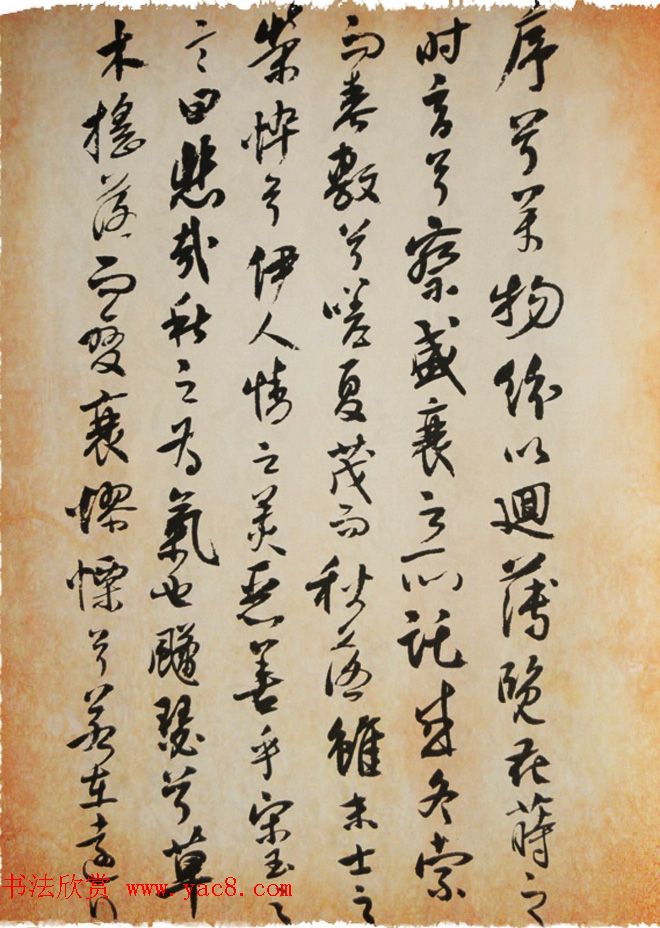 序兮萬物紛以迴薄覽花蒔之
时育兮察盛衰之所託感冬索
而春敷兮嗟夏茂而秋落雖末士之
榮悴兮伊人情之美惡善乎宋玉之
言曰悲哉秋之為氣也瑟兮草
木搖落而變衰憀慄兮若在遠行
书法欣赏 www.yac8.com